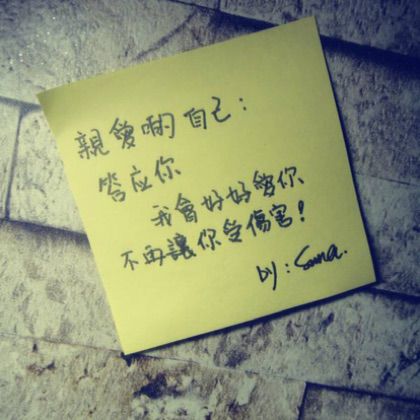 親愛啲自己:
答应你
我會好好愛你
不再讓你受傷害!
by: Sunna.